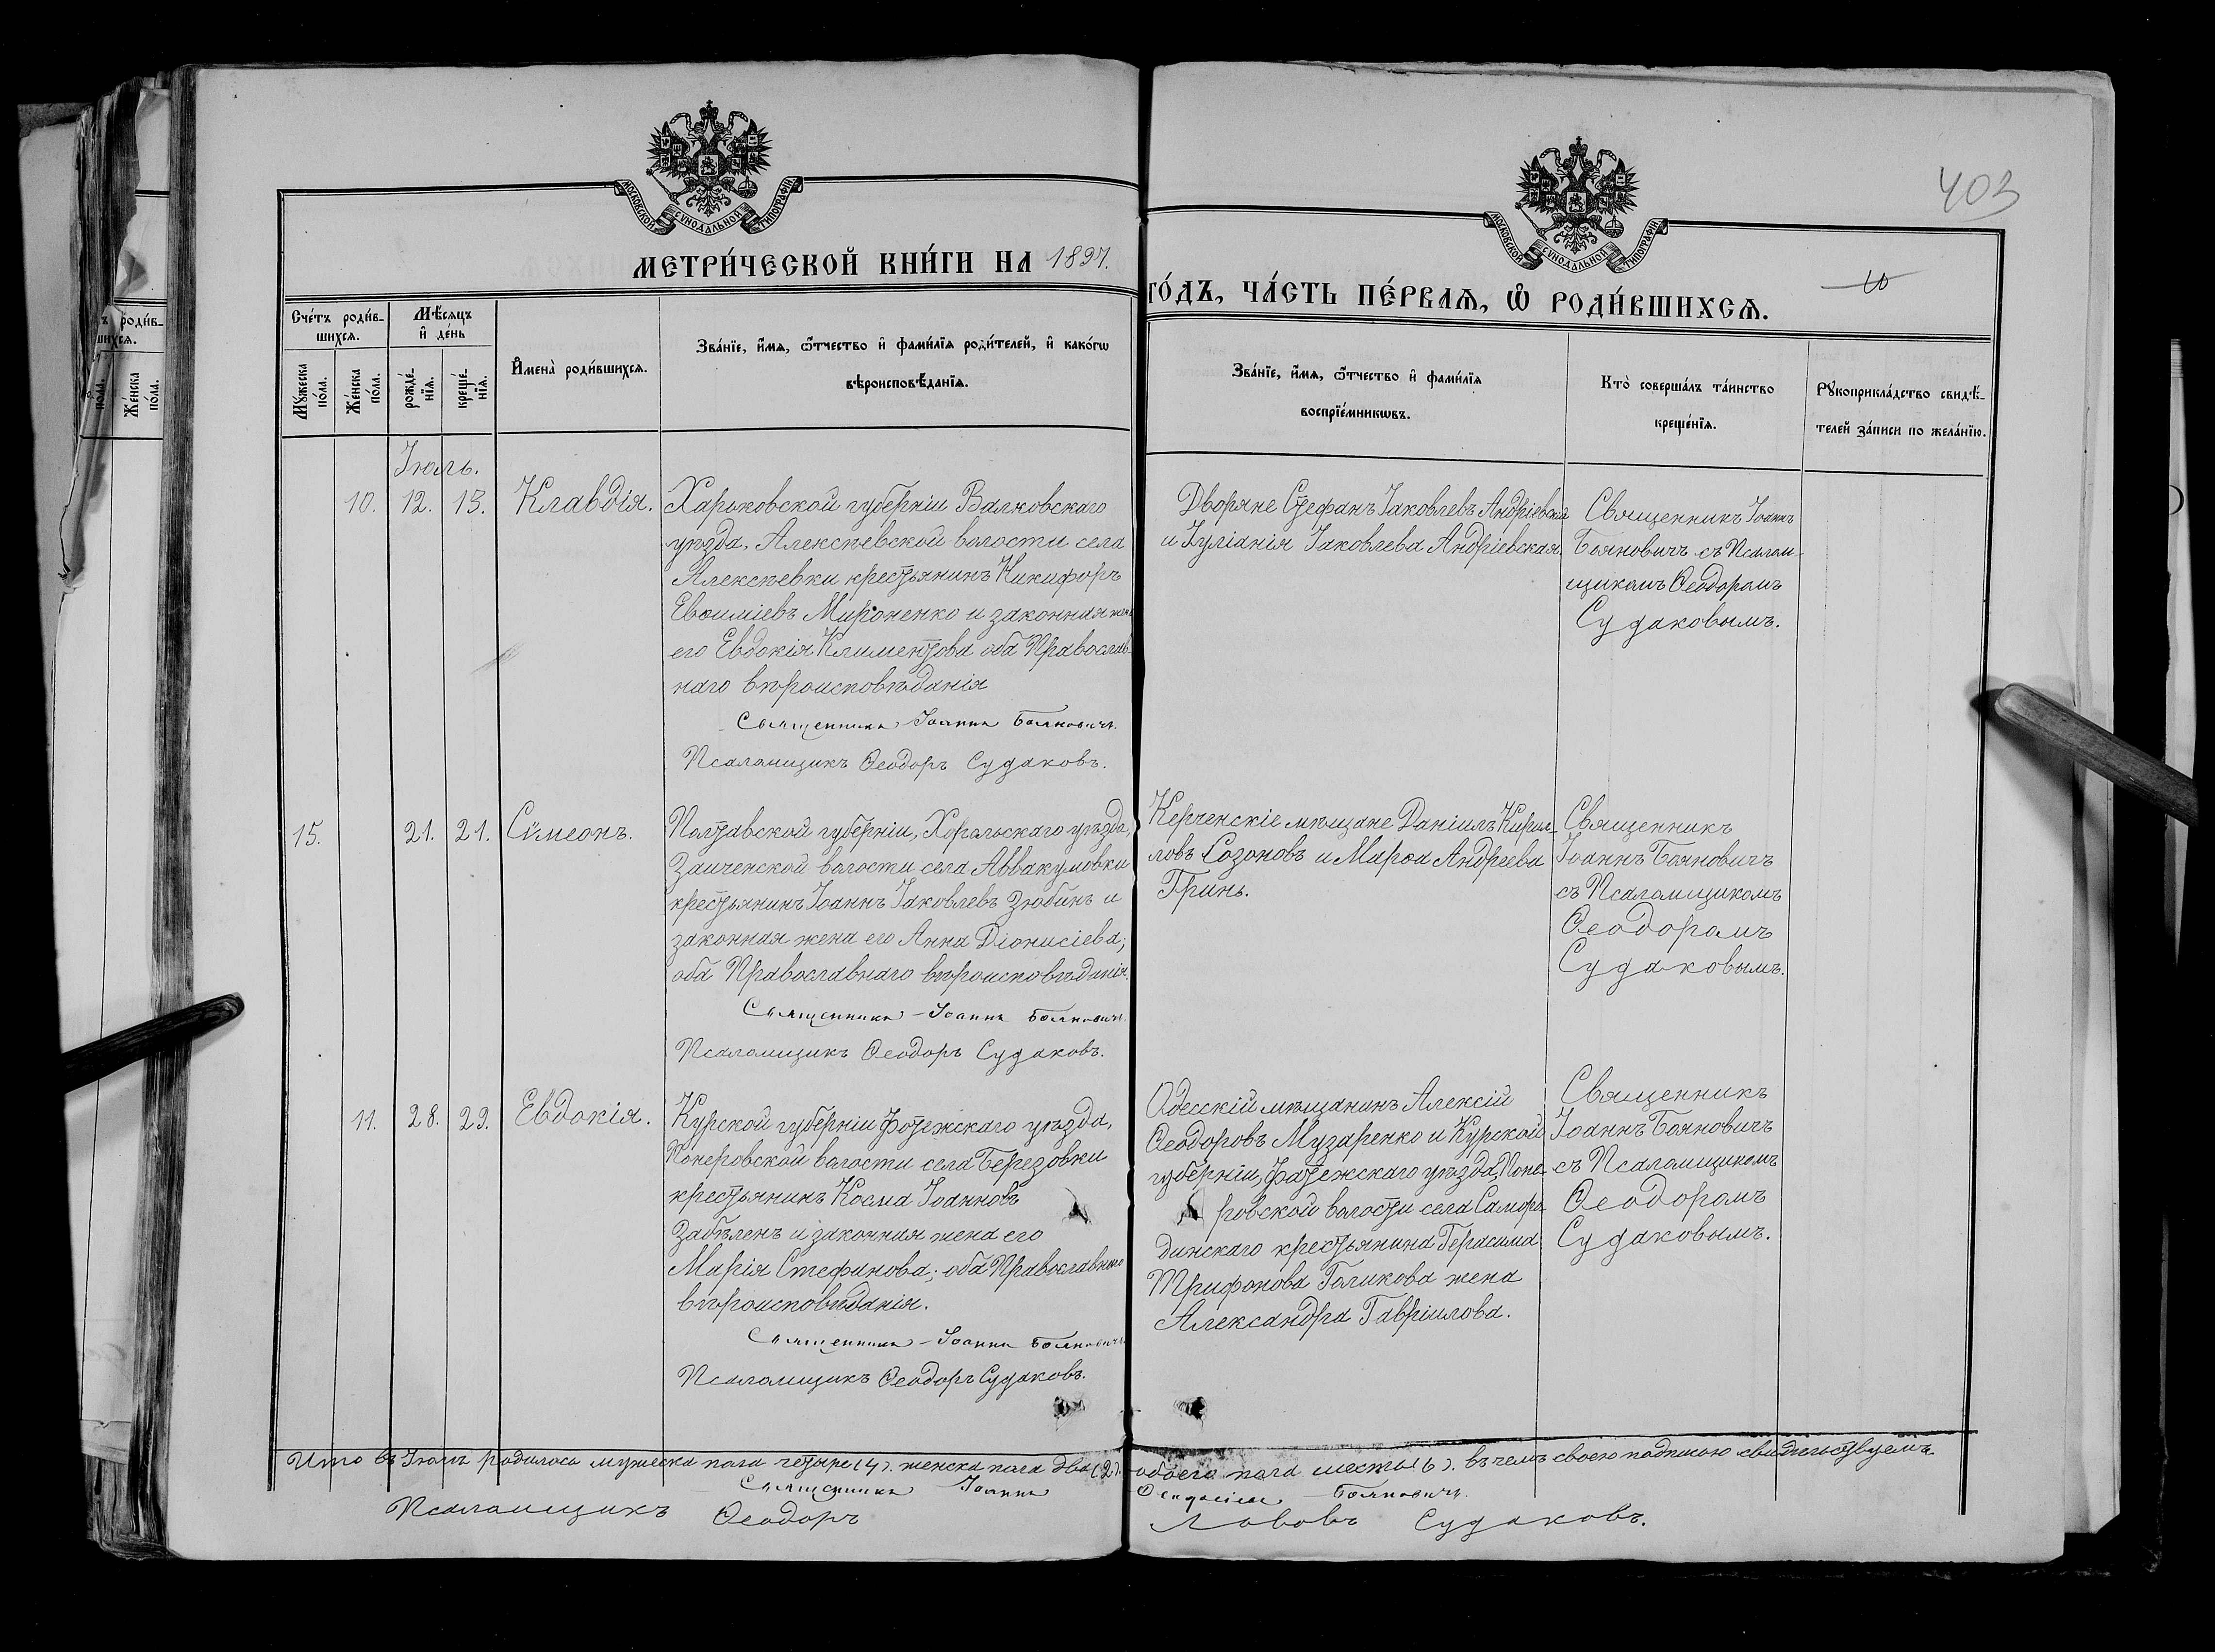 403
МОСКОВСКОЙ СУНОДАЛЬНОЙ ТИПОГРАФІИ.
МОСКОВСКОЙ СУНОДАЛЬНОЙ ТИПОГРАФІИ.
МЕТРИ́ЧЕСКОЙ КНИ́ГИ НА 1897.
ГО́ДЪ, ЧА́СТЬ ПЕ́РВАѦ, Ѡ РОДИ́ВШИХСѦ.
Сче́тъ роди́в-
шихсѧ.
Му́жеска
по́ла.
Же́нска
по́ла.
Мѣ́сѧцъ
и҆ де́нь
рожде́-
нїѧ.
креще́-
нїѧ.
И҆мена̀ роди́вшихсѧ.
Зва́нїе, и҆́мѧ, ѻ҆́тчество и҆ фами́лїѧ роди́телей, и҆ како́гѡ
вѣроисповѣ́данїѧ.
Зва́нїе, и҆́мѧ, ѻ҆́тчество и҆ фами́лїѧ
воспрїе́мникѡвъ.
Кто̀ соверша́лъ та́инство
креще́нїѧ.
Рꙋкоприкла́дство свидѣ́-
телей за́писи по жела́нїю.
Іюль.
10. 12. 13. Клавдія.
Харьковской губерніи Валковскаго
уѣзда, Алексѣевской волости села
Алексѣевки крестьянинъ Никифоръ
Евѳиміевъ Мироненко и законная жена
его Евдокія Климентова оба Православ-
наго вѣроисповѣданія
Священникъ Іоаннъ Бояновичъ.
Псаломщикъ Ѳеодоръ Судаковъ.
Дворяне Стефанъ Іаковлевъ Андріевскій
и Іуліанія Іаковлева Андріевская.
Священникъ Іоаннъ
Бояновичъ съ Псалом-
щикомъ Ѳеодоромъ
Судаковымъ.
15. 21. 21. Сѵмеонъ.
Полтавской губерніи, Хорольскаго уѣзда,
Заиченской волости села Аввакумовки
крестьянинъ Іоаннъ Іаковлевъ Зюбинъ и
законная жена его Анна Діонисіева;
оба Православнаго вѣроисповѣданія.
Священникъ Іоаннъ Бояновичъ.
Псаломщикъ Ѳеодоръ Судаковъ.
Керченскіе мѣщане Даніилъ Кирил-
ловъ Созоновъ и Марѳа Андреева
Гринь.
Священникъ
Іоаннъ Бояновичъ
съ Псаломщикомъ
Ѳеодоромъ
Судаковымъ.
11. 28. 29. Евдокія.
Курской губерніи Фатежскаго уѣзда,
Понеровской волости села Березовки
крестьянинъ Косма Іоанновъ
Забѣленъ и законная жена его
Марія Стефанова; оба Православнаго
вѣроисповѣданія.
Священникъ Іоаннъ Бояновичъ.
Псаломщикъ Ѳеодоръ Судаковъ.
Одесскій мѣщанинъ Алексій
Ѳеодоровъ Музаренко и Курской
губерніи, Фатежскаго уѣзда, Поне
ровской волости села Саморо
динскаго крестьянина Герасима
Трифонова Голикова жена
Александра Гавріилова.
Священникъ
Іоаннъ Бояновичъ
съ Псаломщикомъ
Ѳеодоромъ
Судаковымъ.
Итого въ Іюлѣ родилось мужеска пола четыре (4). женска пола два (2). обоего пола шесть (6). въ чемъ своею подписью свидѣтельствуемъ.
Священникъ Іоаннъ Бояновичъ.
Псаломщикъ Ѳеодоръ Львовъ Судаковъ.